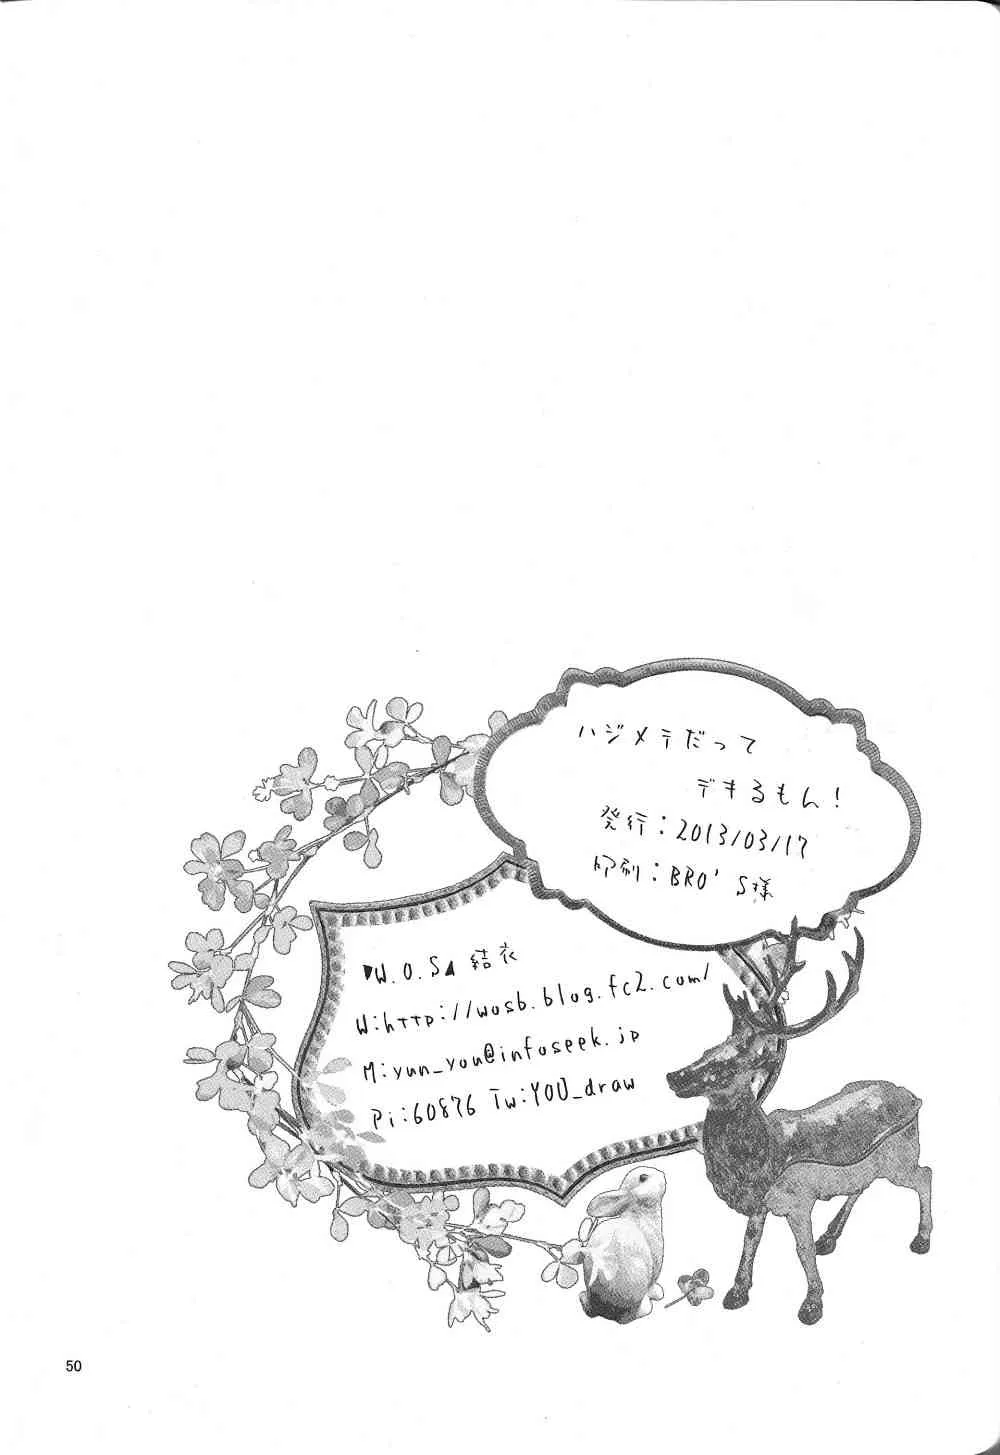 ハジメテだって
デキるもん！
発行：2013/03/17
印刷：BRO'S様
▼W.O.S▲ 結衣
W:http://wosb.blog.fc2.com/
M:yun_you@infoseek.jp
Pi:60876 Tw:YOU_draw
50